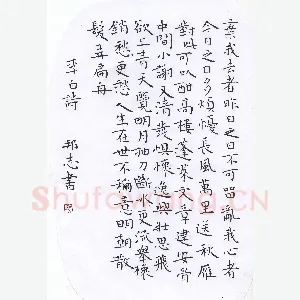 棄我去者昨日之日不可留亂我心者
今日之日多煩擾長風萬里送秋雁
對此可以酣高樓蓬萊文章建安骨
中間小謝又清發俱懷逸興壯思飛
欲上青天覽明月抽刀斷水更流舉杯
銷愁更愁人生在世不稱意明朝散
髮弄扁舟
李白詩 邦志書
Shufawang.CN